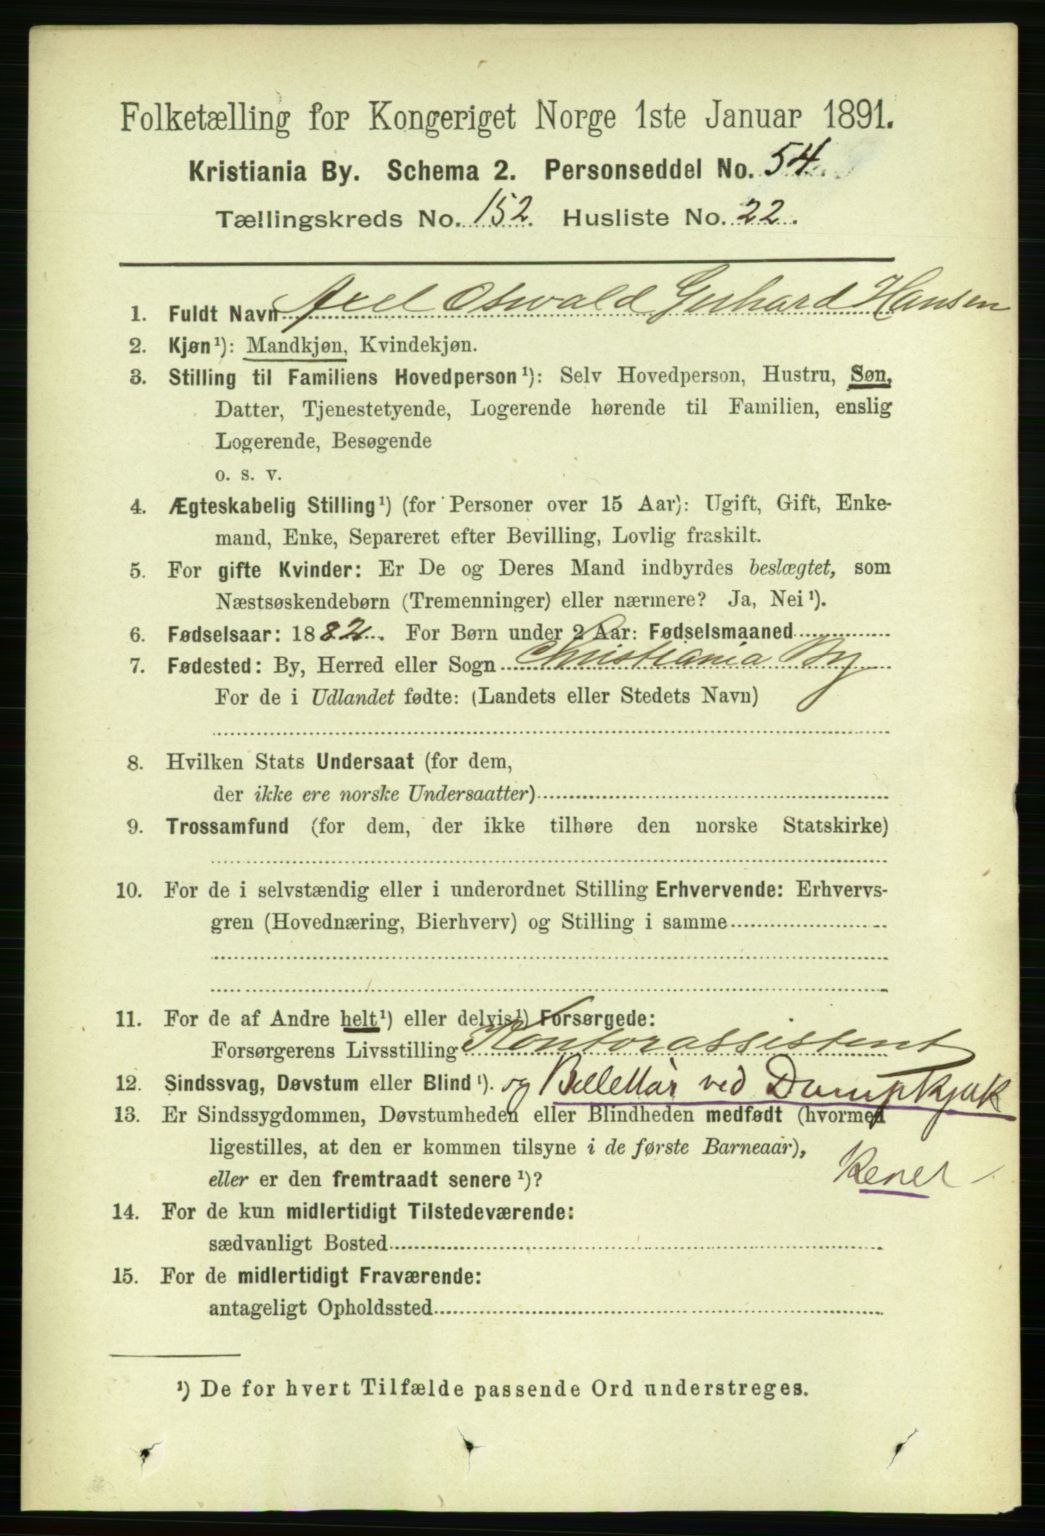 Folketælling for Kongeriget Norge 1ste Januar 1891.
Kristiania By. Schema 2. Personseddel No. 54.
Tællingskreds No. 152. Husliste No. 22.
1. Fuldt Navn Axel Oswald Gerhard Hansen
2. Kjøn¹): Mandkjøn, Kvindekjøn.
3. Stilling til Familiens Hovedperson¹): Selv Hovedperson, Hustru, Søn,
Datter, Tjenestetyende, Logerende hørende til Familien, enslig
Logerende, Besøgende
o. s. v.
4. Ægteskabelig Stilling¹) (for Personer over 15 Aar): Ugift, Gift, Enke-
mand, Enke, Separeret efter Bevilling, Lovlig fraskilt.
5. For gifte Kvinder: Er De og Deres Mand indbyrdes beslægtet, som
Næstsøskendebørn (Tremenninger) eller nærmere? Ja, Nei¹).
6. Fødselsaar: 1882. For Børn under 2 Aar: Fødselsmaaned
7. Fødested: By, Herred eller Sogn Christiania By
For de i Udlandet fødte: (Landets eller Stedets Navn)
8. Hvilken Stats Undersaat (for dem,
der ikke ere norske Undersaatter)
9. Trossamfund (for dem, der ikke tilhøre den norske Statskirke)
10. For de i selvstændig eller i underordnet Stilling Erhvervende: Erhvervs-
gren (Hovednæring, Bierhverv) og Stilling i samme
11. For de af Andre helt¹) eller delvis¹) Forsørgede:
Forsørgerens Livsstilling Kontorassistent
12. Sindssvag, Døvstum eller Blind¹). og Billettør ved Dampkjøk
13. Er Sindssygdommen, Døvstumheden eller Blindheden medfødt (hvormed
ligestilles, at den er kommen tilsyne i de første Barneaar),
eller er den fremtraadt senere¹)?
14. For de kun midlertidigt Tilstedeværende:
sædvanligt Bosted
15. For de midlertidigt Fraværende:
antageligt Opholdssted
¹) De for hvert Tilfælde passende Ord understreges.